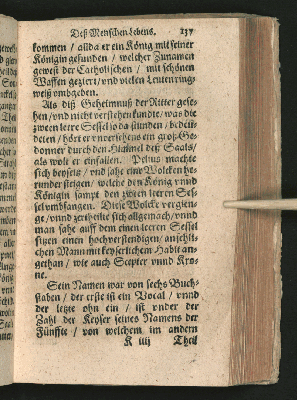 Deß Menschen Lebens. 137
kommen / allda er ein König mit seiner
Königin gefunden / welcher Zunamen
gewest der Catholischen / mit schönen
Waffen geziert / vnd vielen Leutenring-
weiß vmbgeben.
Als diß Geheimnuß der Ritter gese-
hen / vnd nicht verstehen kundte / was die
zween leere Sessel so da stunden / bedeut-
deten / hört er vnversehens ein groß Ge-
donner durch den Himmel deß Saals /
als wolt er einfallen. Petrus machte
sich beyseits / vnd sahe eine Wolcken he-
runder steigen / welche den König vnnd
Königin sampt den zween leeren Ses-
sel vmbfangen. Diese Wolck vergien-
ge / vnnd zertheilte sich allgemach / vnnd
man sahe auff dem einen leeren Sessel
sitzen einen hochverstendigen / ansehli-
chen Mann mit keyserlichem Habit an-
gethan / wie auch Scepter vnnd Kro-
ne.
Sein Namen war von sechs Buch-
staben / der erste ist ein Vocal / vnnd
der letzte ohn ein / ist vnder der
Zahl der Keyser seines Namens der
Fünffte / von welchem im andern
K iiij Theil